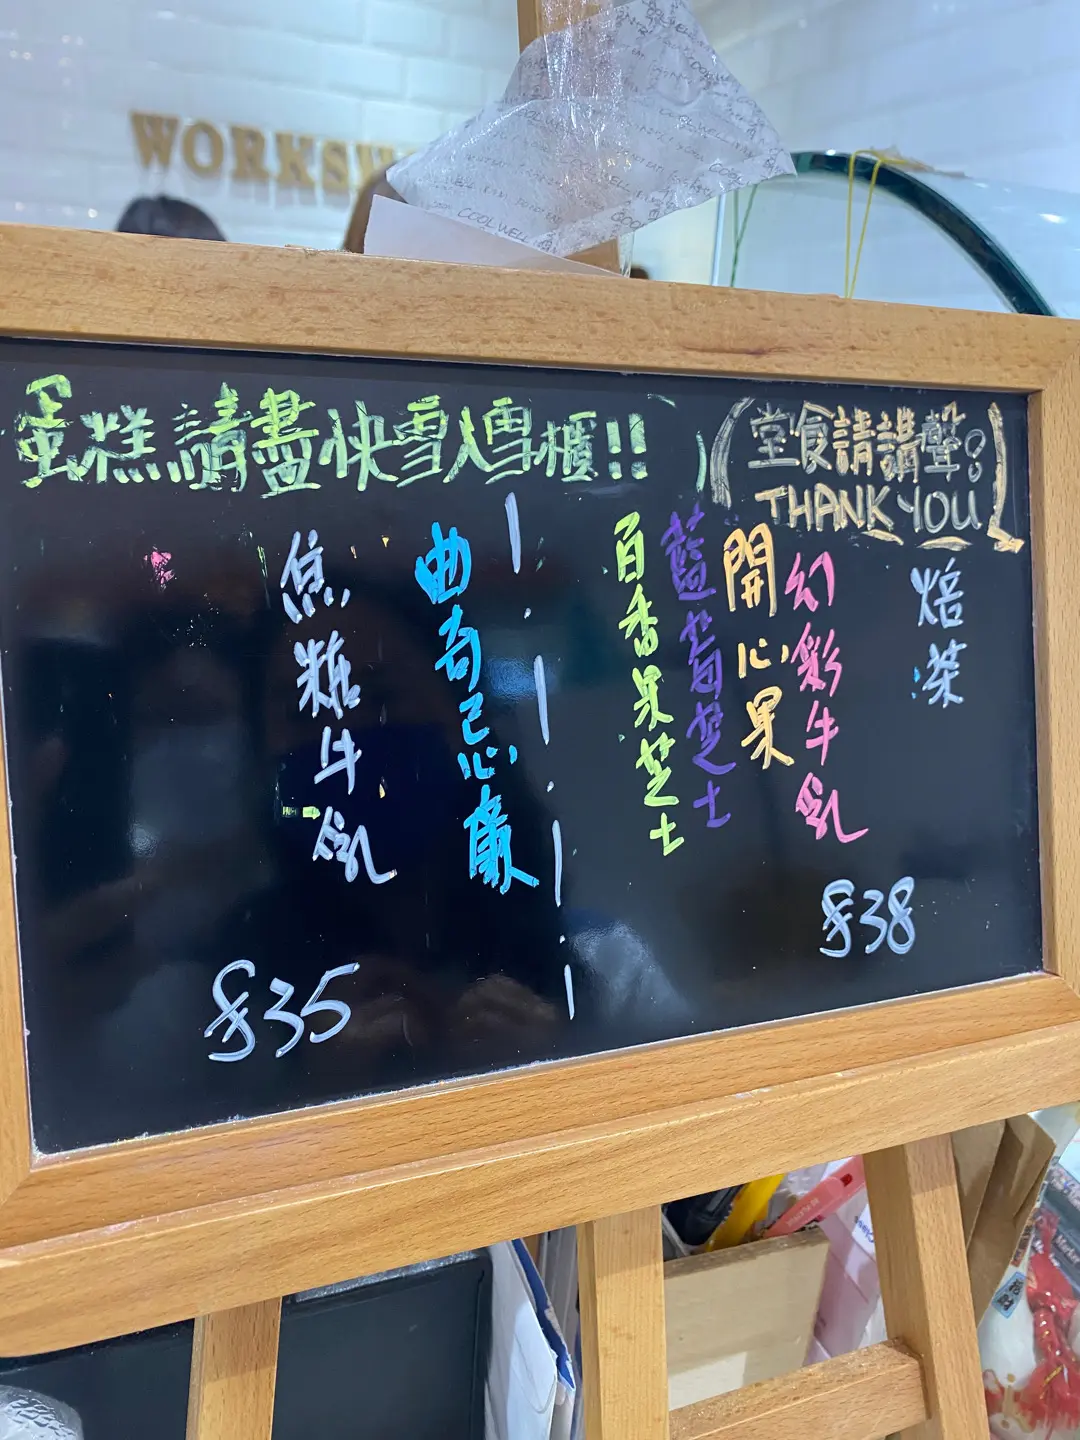 WORKS
COOL WELL
蛋糕請盡快雪入雪櫃!!
(堂食請講聲。
THANK YOU
焙茶
幻彩牛乳
開心果
藍莓芝士
百香果芝士
$38
曲奇忌廉
焦糖牛乳
$35